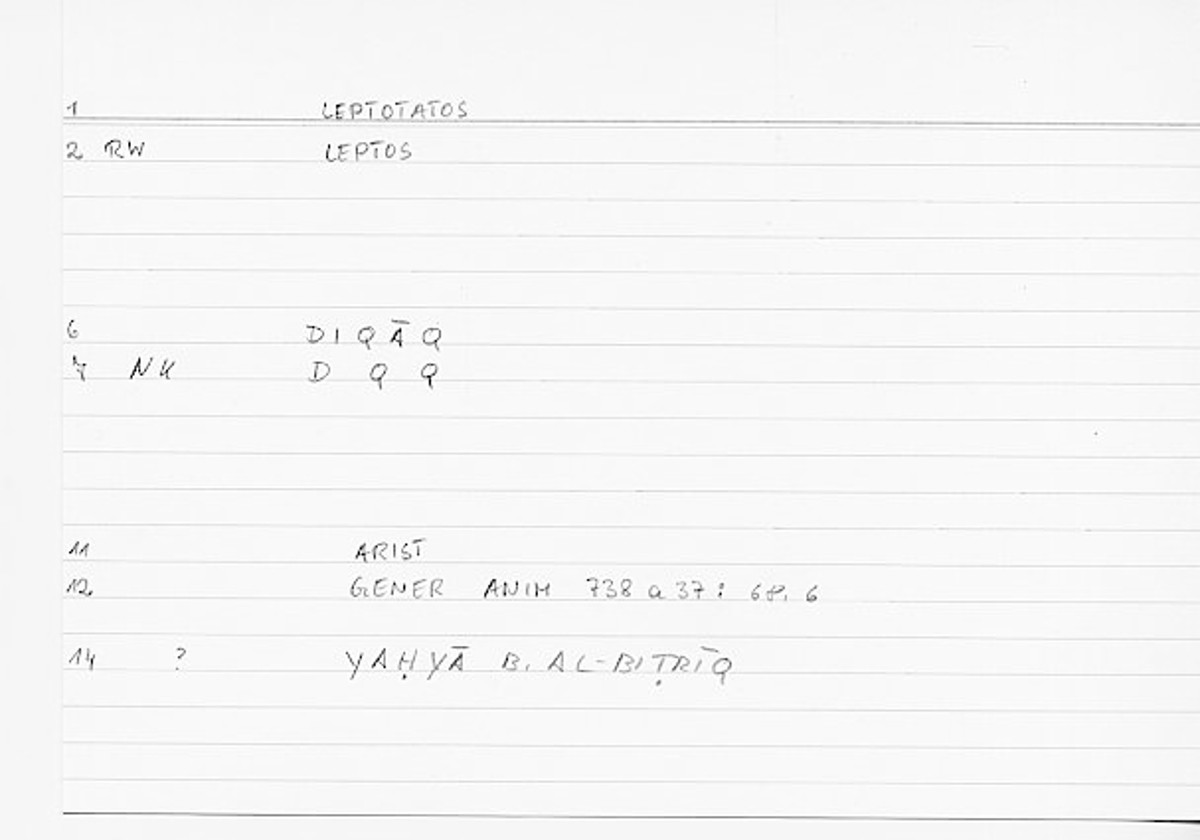 1 LEPTOTATOS
2 RW LEPTOS
6 DIQĀQ
7 NK D Q Q
11 ARIST
12 GENER ANIM 738 a 37 : 68, 6
14 ? YAḤYĀ B. AL-BIṬRĪQ